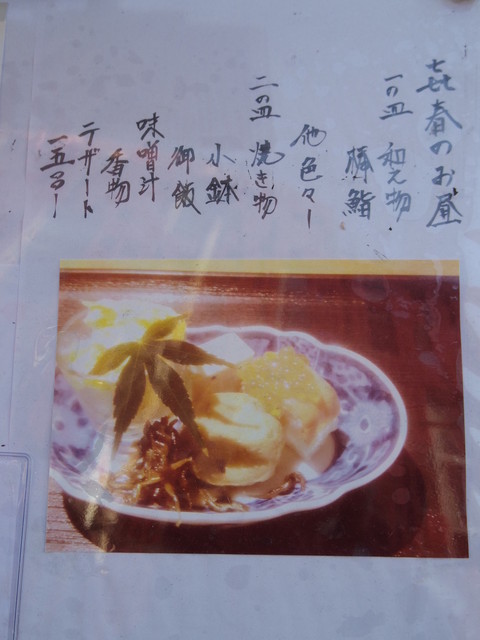 㐂春のお昼
一の皿 和え物
棒鮨
他色々ー
二の皿 焼き物
小鉢
御飯
味噌汁
香物
デザート
一五〇〇ー